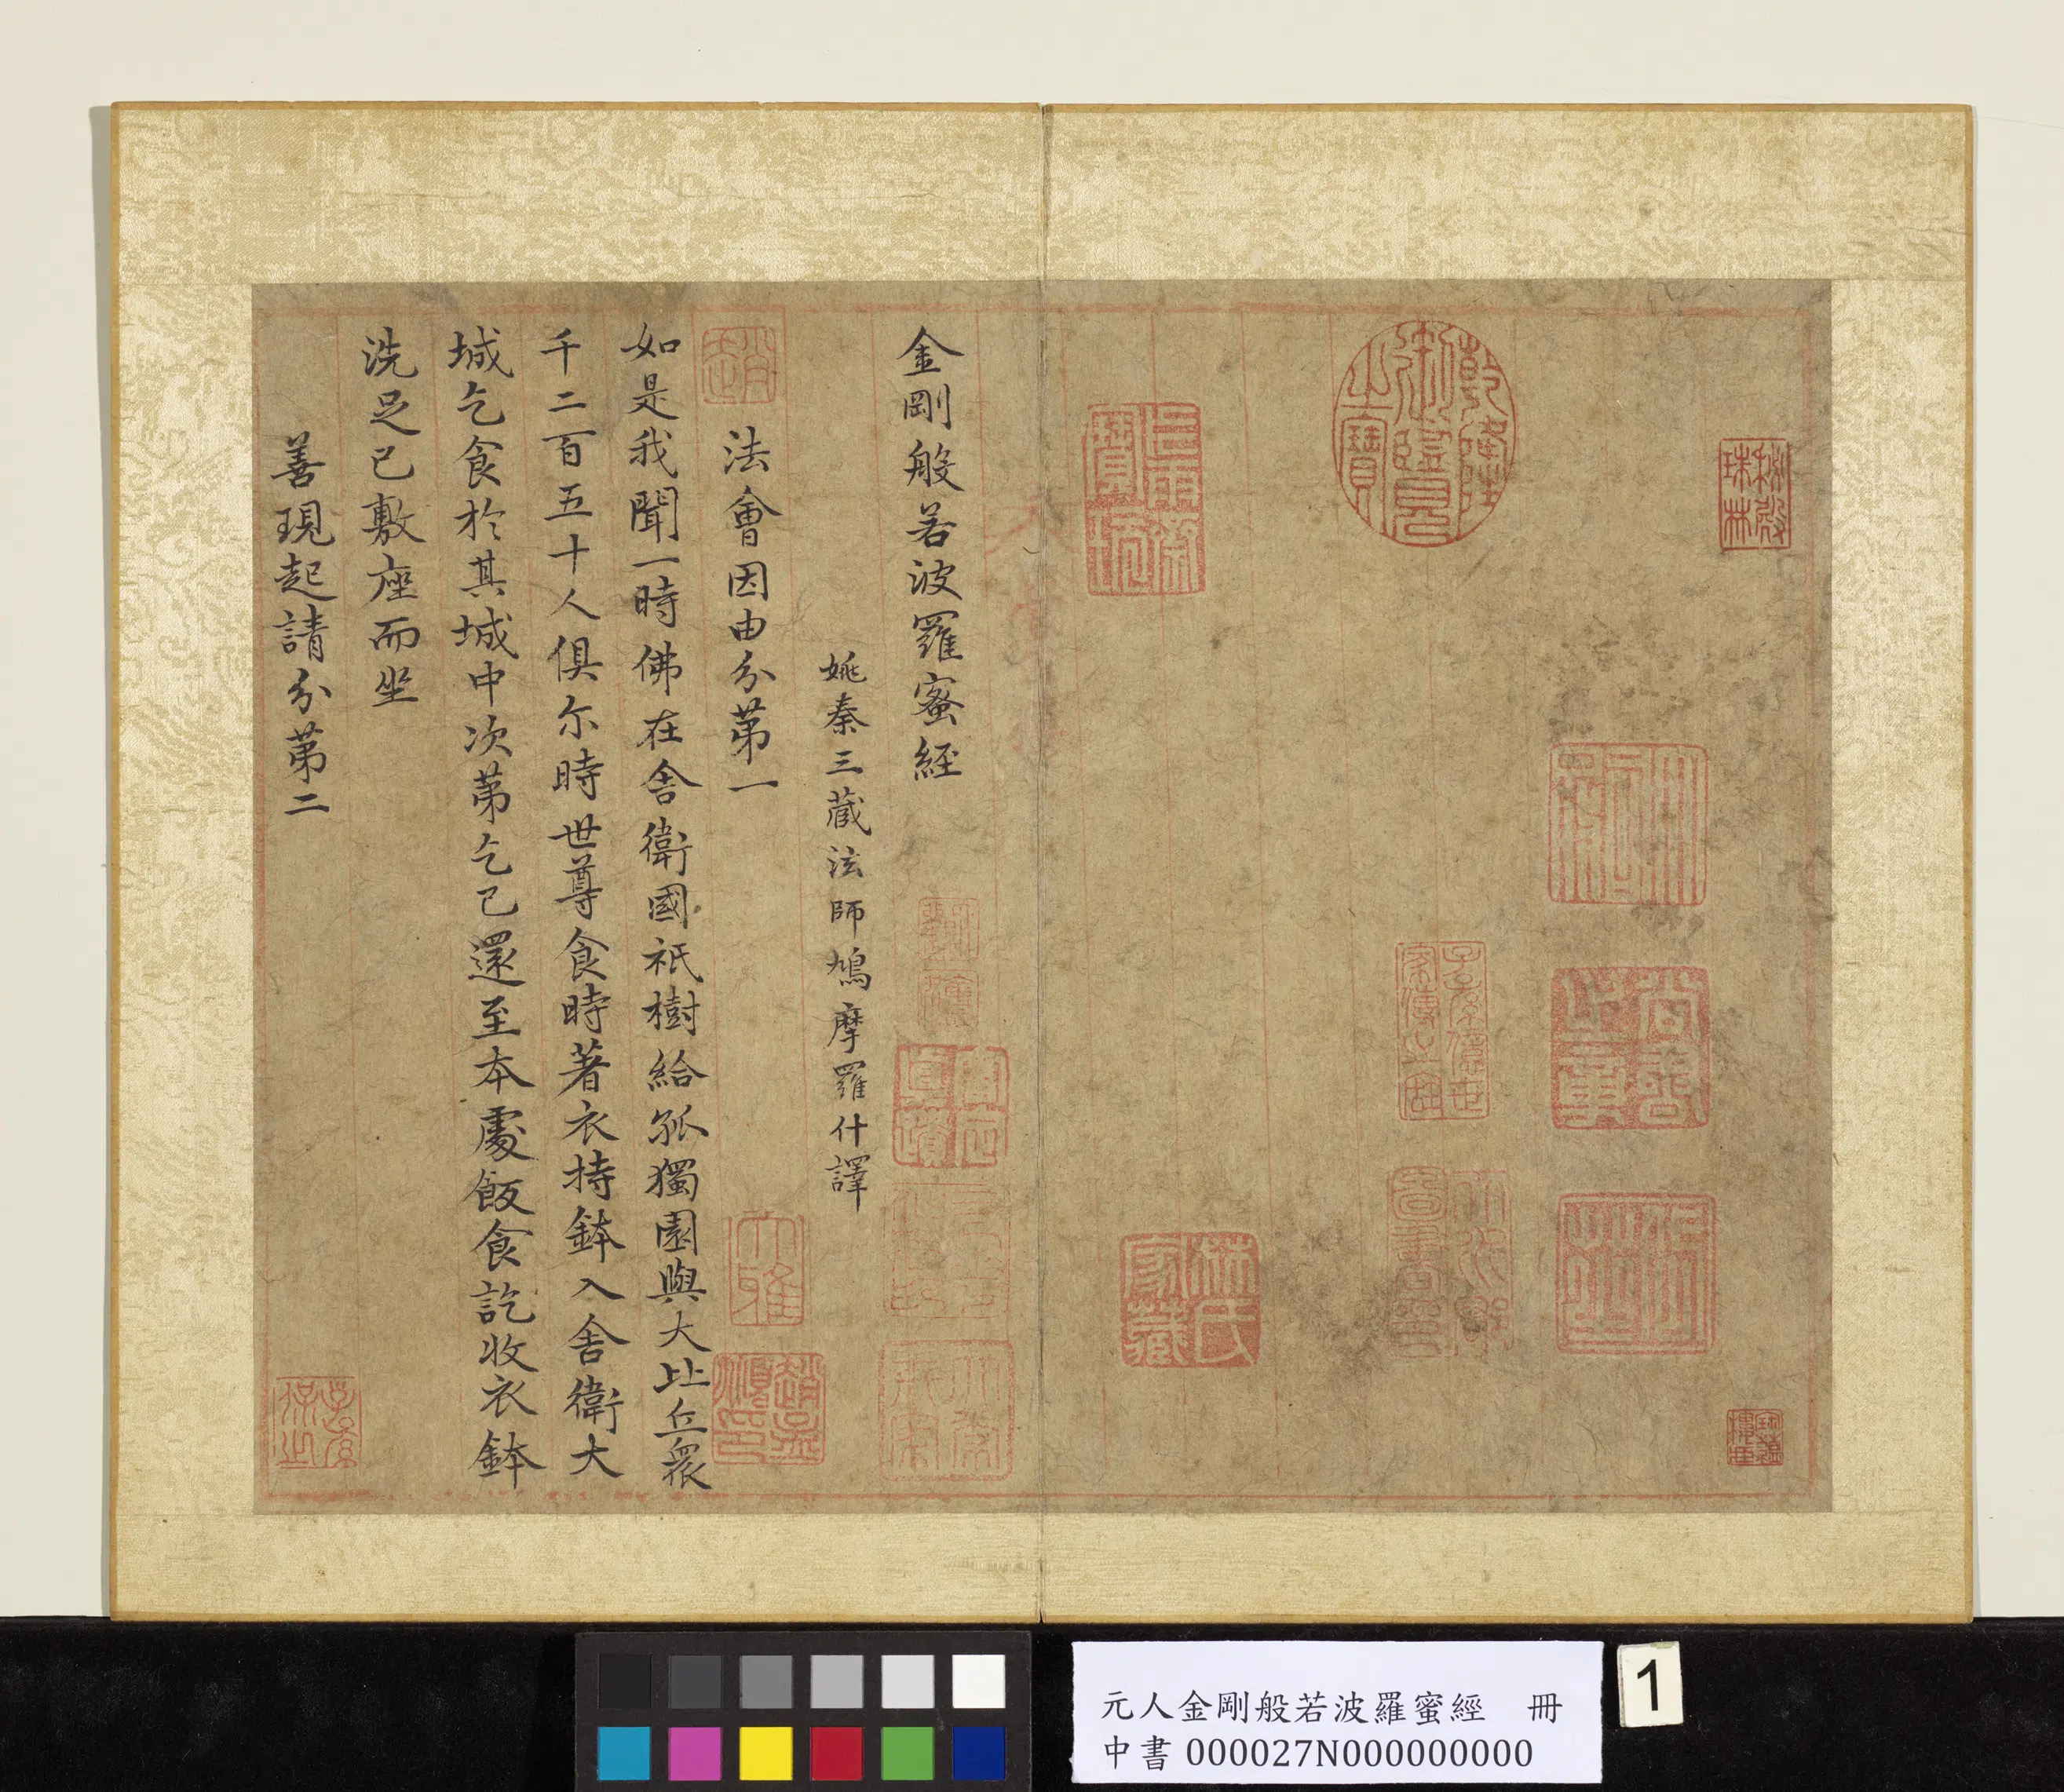 乾隆御覽之寶
秘殿珠林
尚善之章
林氏家藏
寶蘊樓書畫錄
金剛般若波羅蜜經
姚秦三藏法師鳩摩羅什譯
趙
大雅
趙孟頫印
法會因由分第一
如是我聞一時佛在舍衛國祇樹給孤獨園與大比丘衆
千二百五十人俱尒時世尊食時著衣持鉢入舍衛大
城乞食於其城中次第乞已還至本處飯食訖收衣鉢
洗足已敷座而坐
善現起請分第二
元人金剛般若波羅蜜經 冊
中書000027N000000000
1